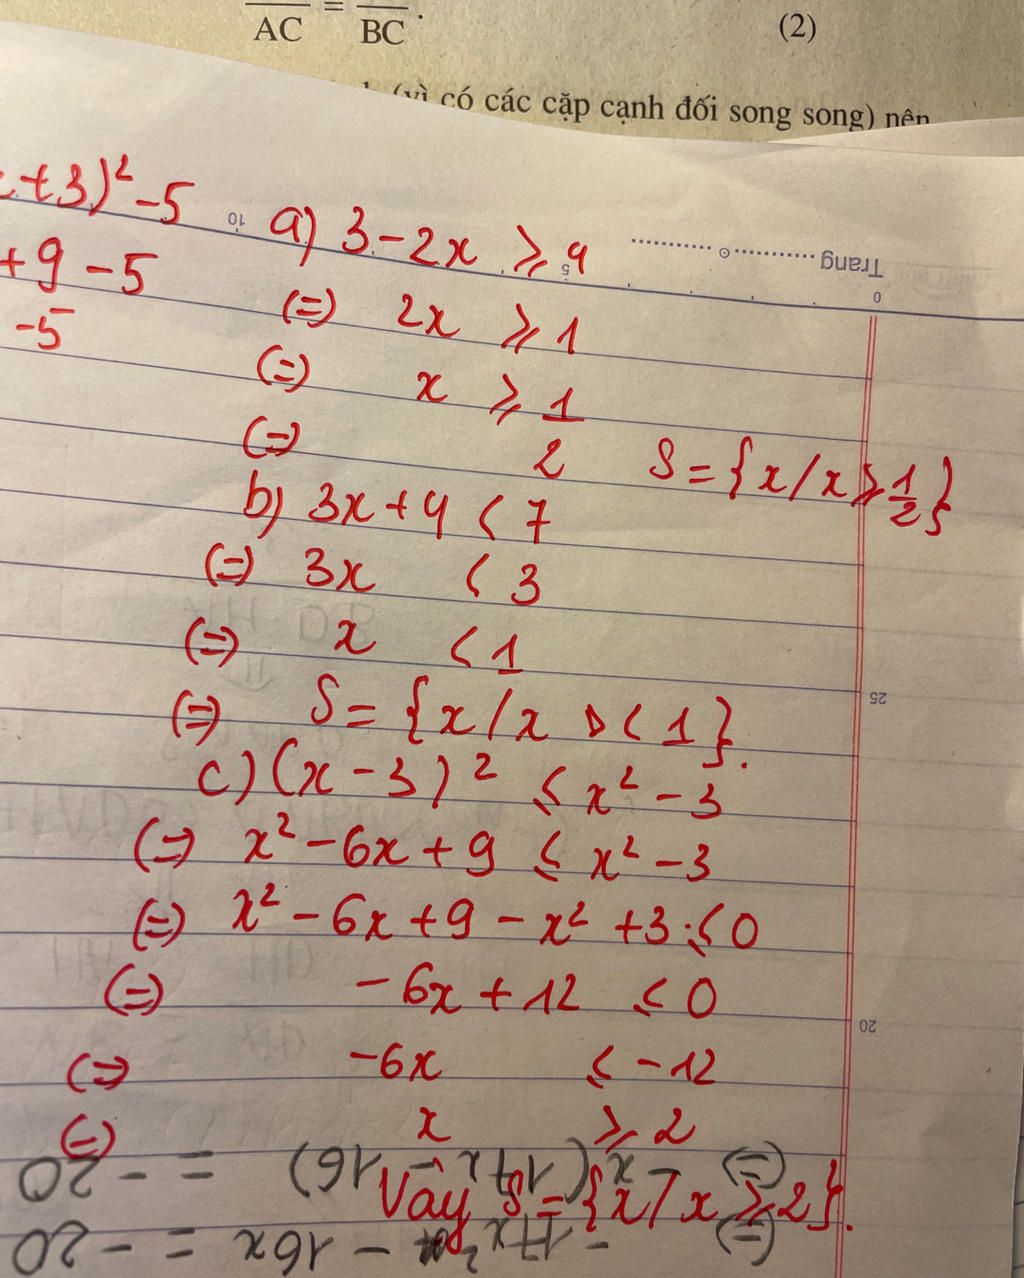 AC = BC .
(2)
(vì có các cặp cạnh đối song song) nên
+3)² -5
+9 -5
-5
10
5
0
Trang ............⊙............
a) 3-2x ≥ 4
(=) 2x ≥ 1
(=) x ≥ 1
(=) 2 S={x/x≥1/2}
b) 3x+4 < 7
(=) 3x < 3
(=) x < 1
(=) S={x/x < 1}.
25
c) (x-3)² ≤ x²-3
(=) x²-6x+9 ≤ x²-3
(=) x²-6x+9-x²+3 ≤ 0
(=) -6x+12 ≤ 0
20
(=) -6x ≤ -12
(=) x ≥ 2
Vậy S={x/x ≥ 2}.
(=) -17x² - 16x = -20
(=) x(17x - 16) = -20